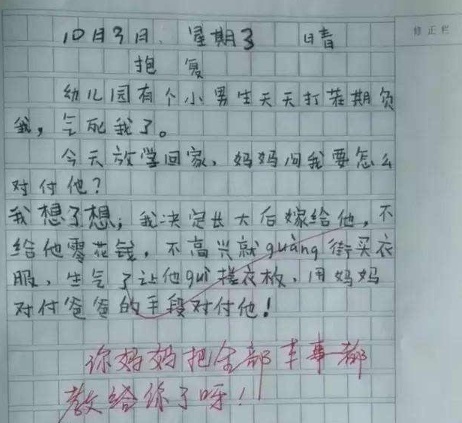 10月3日 星期3 晴
抱复
幼儿园有个小男生天天打若期负
我，气死我了。
今天放学回家，妈妈问我要怎么
对付他？
我想了想，我决定长大后嫁给他，不
给他零花钱，不高兴就guàng街买衣
服，生气了让他guì搓衣板，用妈妈
对付爸爸的手段对付他！
你妈妈把全部本事都
教给你了呀！
修正栏